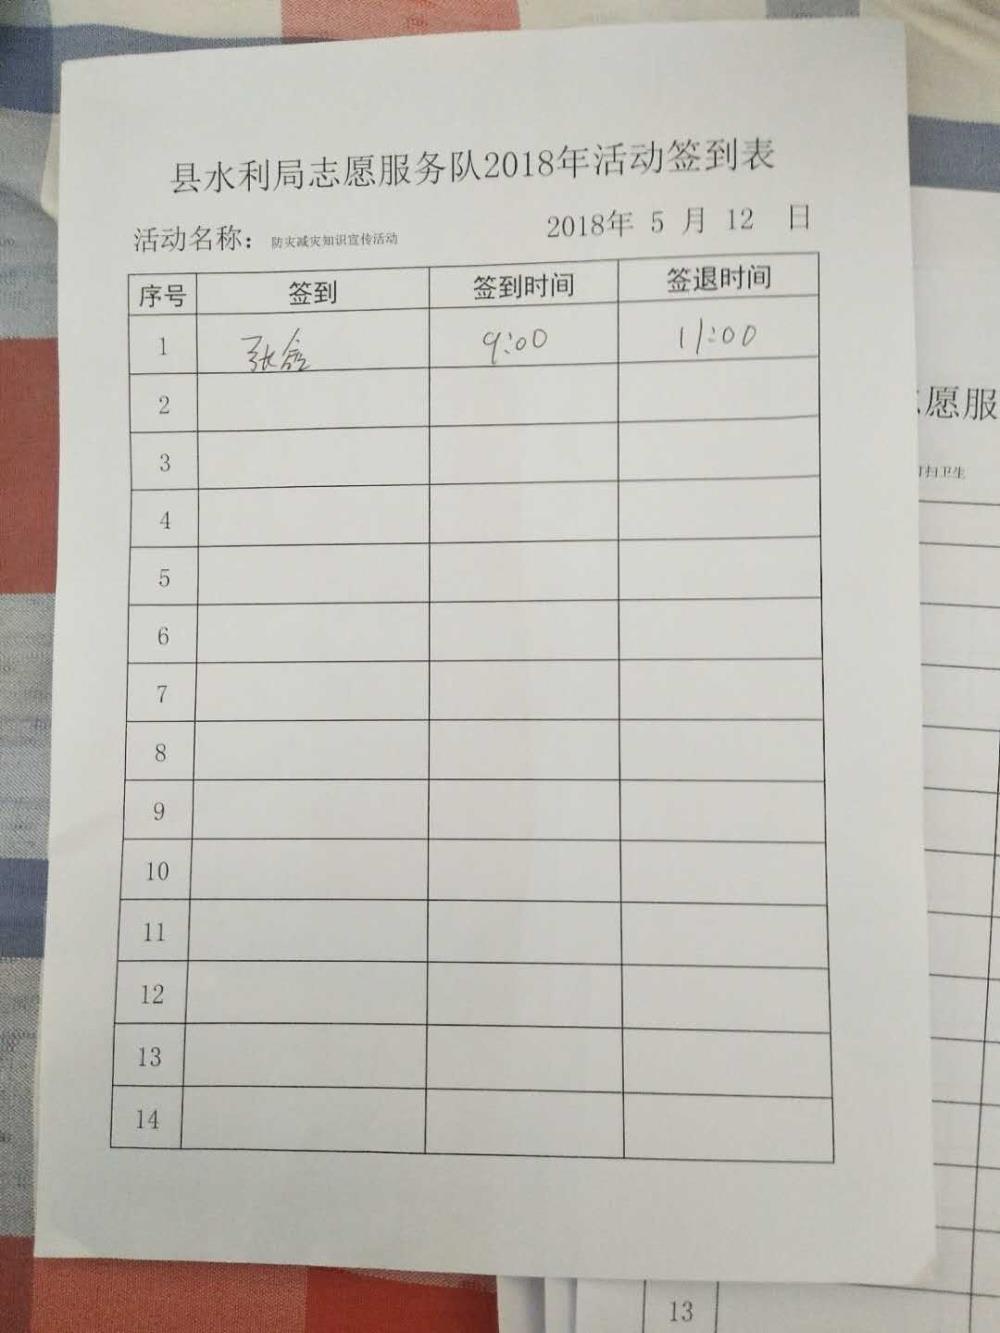 县水利局志愿服务队2018年活动签到表
活动名称：防灾减灾知识宣传活动 2018年 5 月 12 日
序号 签到 签到时间 签退时间
1 张鑫 9:00 11:00
2
3
4
5
6
7
8
9
10
11
12
13
14
愿服
扫卫生
13